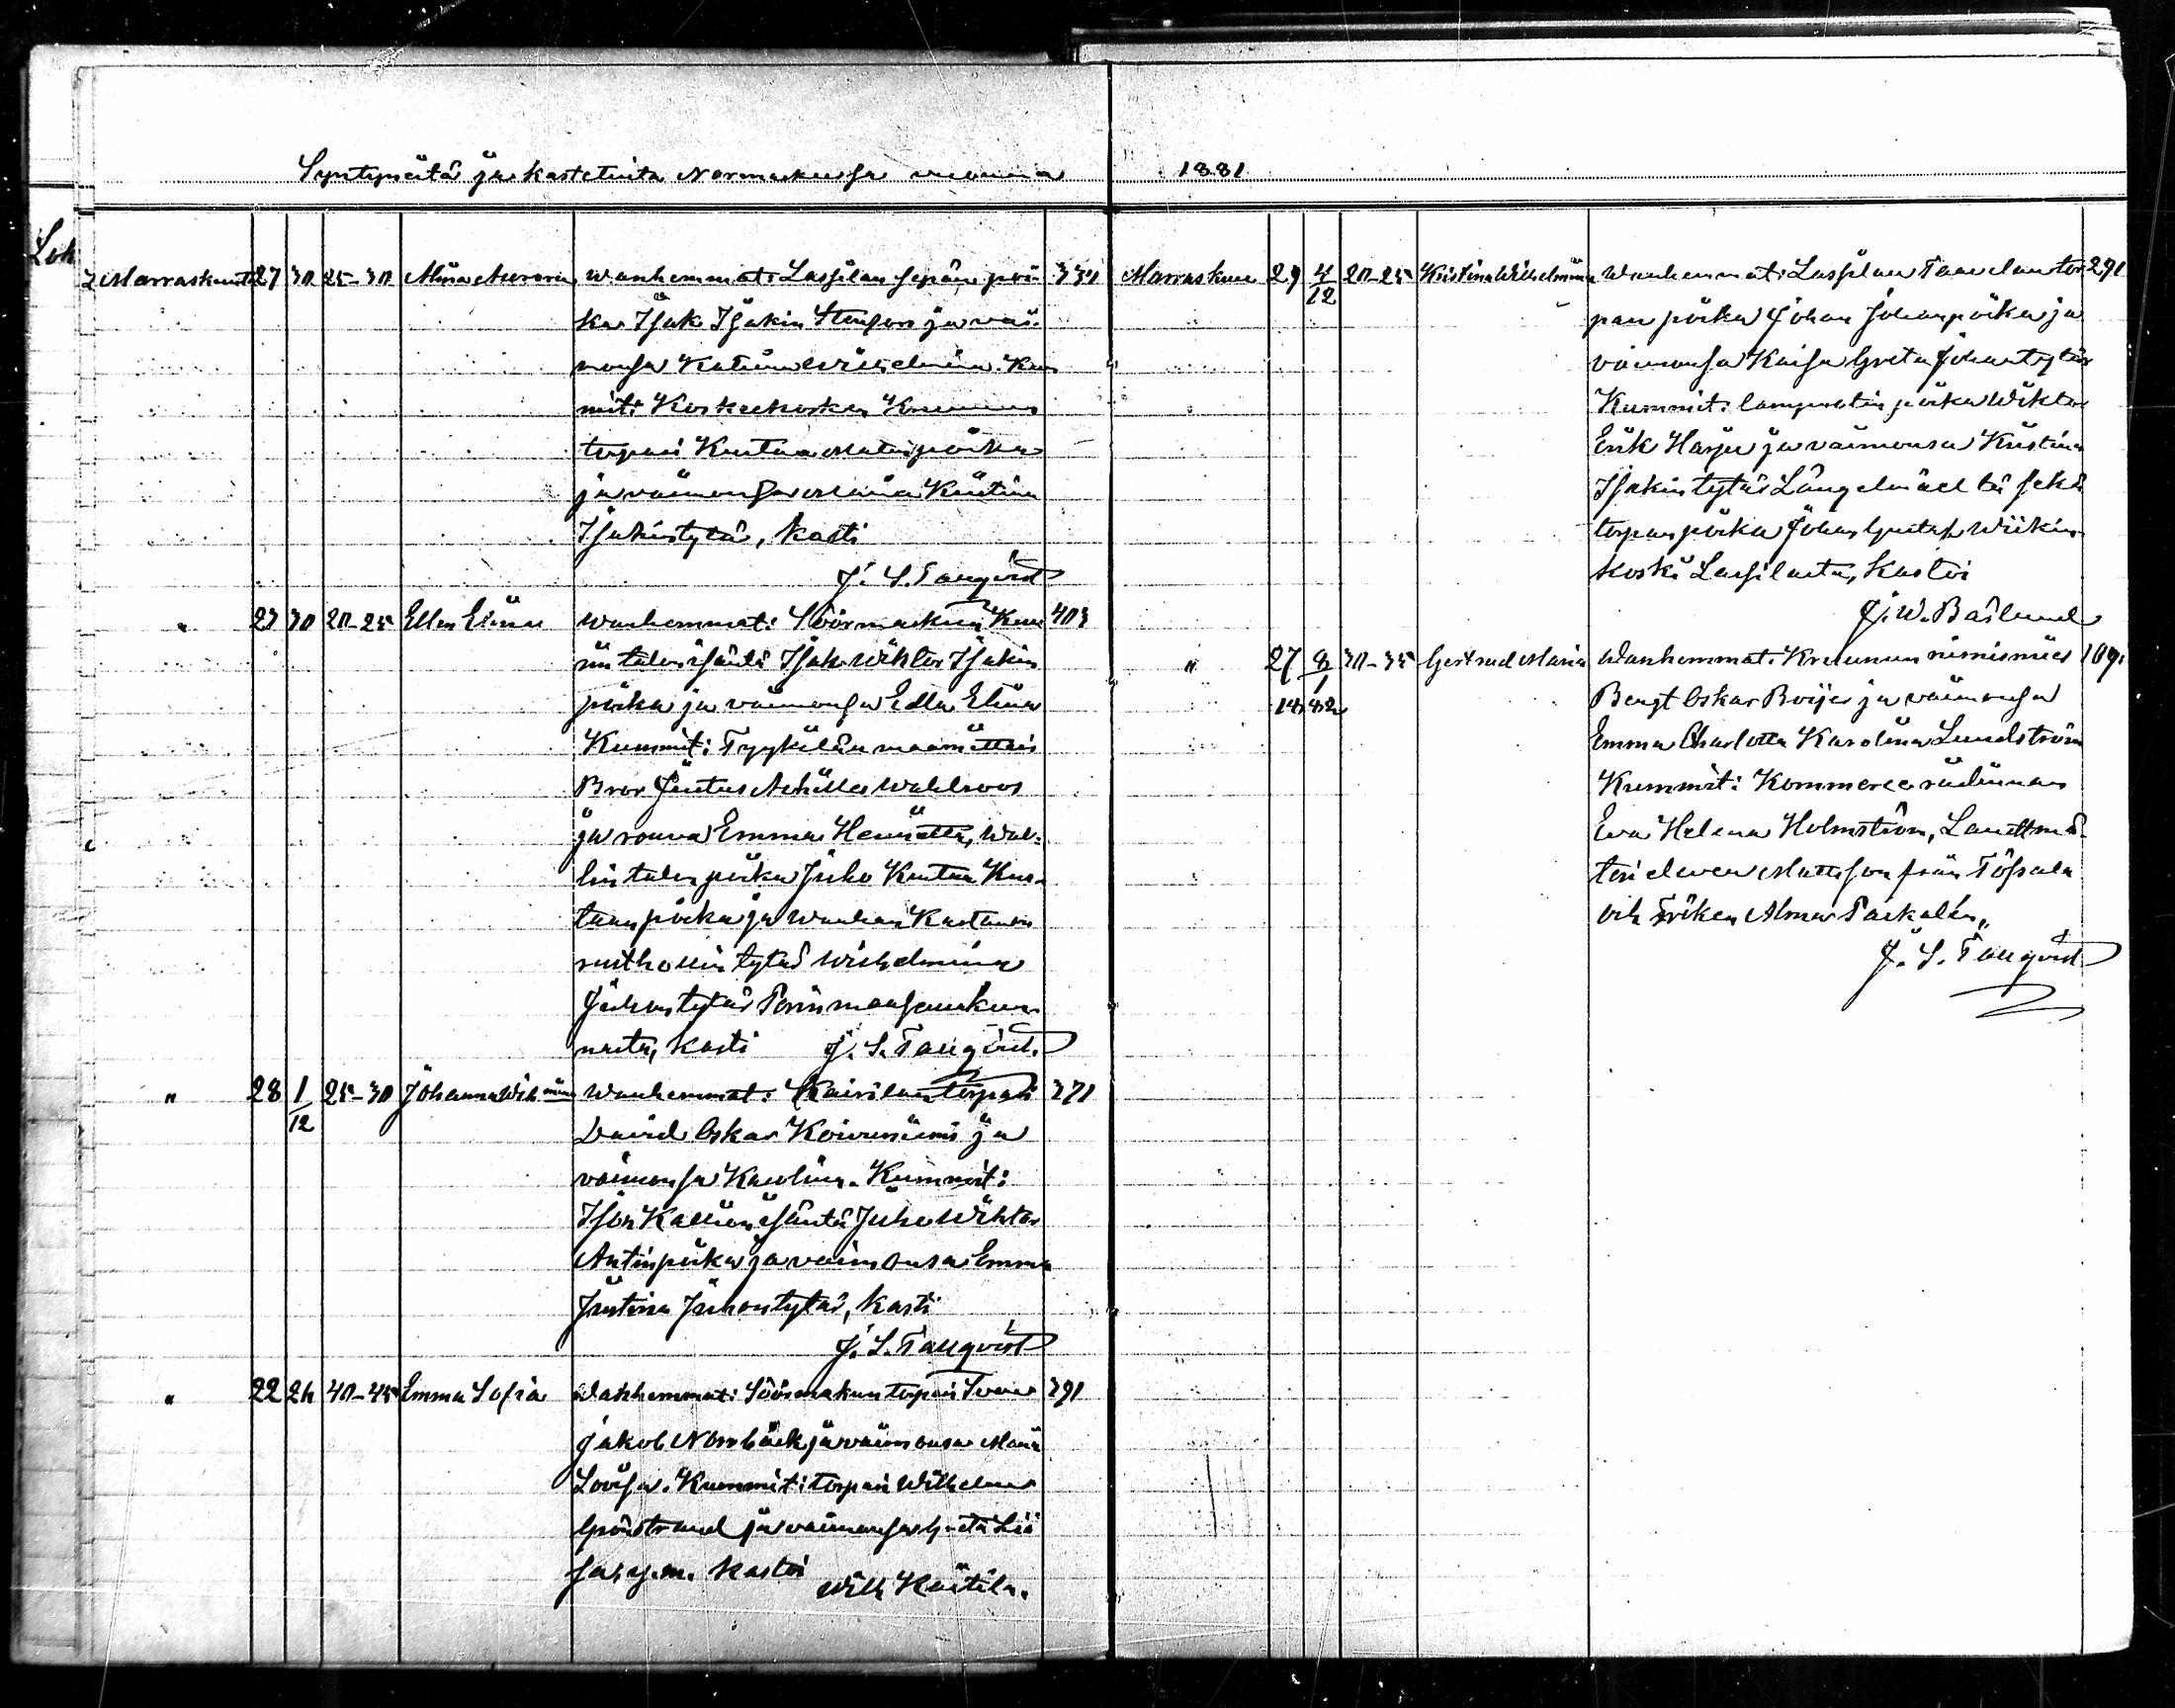 Syntyneitä ja kastetuita Normarkussa vuonna 1881
Loh
Marraskuuta 27 30 25-30 Alina Aurora Wanhemmat: Lassilan sepän poi- 334
ka Isak Isakin Stenfors ja vai-
monsa Katrina Wilhelmina. Kum
mit: Koskeekosken
torpari Kustaa Matinpoika
ja vaimonsa Maria Kristina
Isakintytär, kasti
J. S. Tallqvist
" 27 30 20-25 Ellen Elina Wanhemmat: Söörmarkun 403
talon isäntä Isak Wiktor Isakin
poika ja vaimonsa Edla Elina
Kummit: Tyykilän maamittari
Bror Justus Achilles Wahlroos
ja rouva Emma Henrietta, Wal-
lin talon poika Juho Kustaa Kus-
taanpoika ja Wanhan Kartanon
rusthollin tytär Wilhelmina
Juhontytär Porin maaseurakun-
nasta, kasti J. S. Tallqvist.
" 28 1/12 25-30 Johanna Wilhmina Wanhemmat: Kairilan torpari 371
David Oskar Koivuniemi ja
vaimonsa Karolina. Kummit:
Ison Kallion isäntä Juho Wihtor
Antinpoika ja vaimonsa Emma
Justina Juhontytär, kasti
J. S. Tallqvist
" 22 24 40-45 Emma Sofia Wanhemmat: Söörmarkun torpari 391
Jakob Norrbäck ja vaimonsa Maria
Lovisa. Kummit: torpari Wilhelm
Grönstrand ja vaimonsa Greta Lii
sa, y.m. kastoi
Wilh Käitilä.
Marraskuu 29 4/12 20-25 Kristina Wilhelmiina Wanhemmat: Lassilan Taavelan tor 291
pan poika Johan Johanpoika ja
vaimonsa Kaisa Greta Johantytär
Kummit: lampuotin poika Wiktor
Erik Harju ja vaimonsa Kristina
Isakintytär Längelmäeltä sekä
torpan poika Johan Gustaf Wiikin
koski Lassilasta, Kastoi
J. W. Båslund
" 27 8/1 30-35 Gertrud Maria Wanhemmat: Kruunun nimismies 109.
1882 Bengt Oskar Boijer ja vaimonsa
Emma Charlotta Karolina Lundström
Kummit: Kommerce rådinnan
Eva Helena Holmström, Landtmä-
teri eleven Mattsson från Töfsala
och Fröken Alma Packalén,,
J. S. Tallqvist